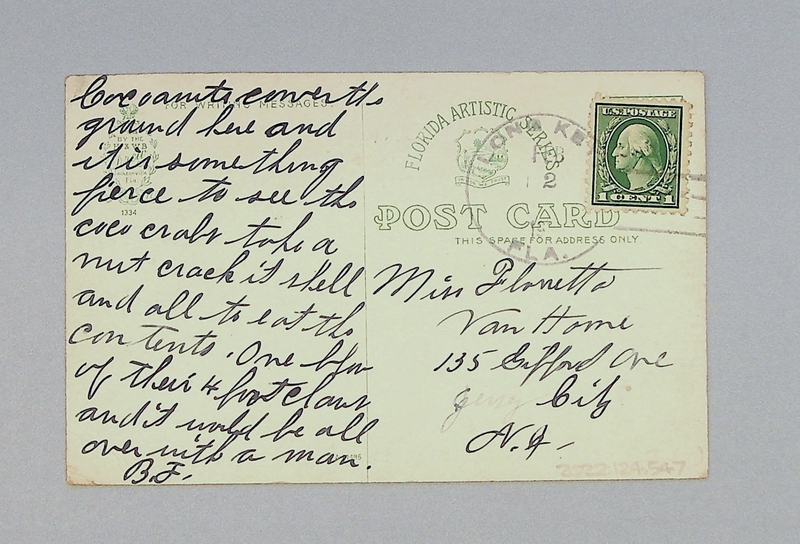 FOR WRITING MESSAGES.
Cocoanuts cover the
ground here and
it is something
fierce to see the
coco crabs take a
nut crack it shell
and all to eat the
contents. One blow
of their 4 foot claws
and it would be all
over with a man.
B.F.
BY THE
1334
FLORIDA ARTISTIC SERIES
LONG KE
FEB
2
FLA.
U.S. POSTAGE
1 CENT 1
POST CARD
THIS SPACE FOR ADDRESS ONLY
Miss Floretta
Van Horne
135 Gifford Ave
Jersey City
N.J.
2022.124.547